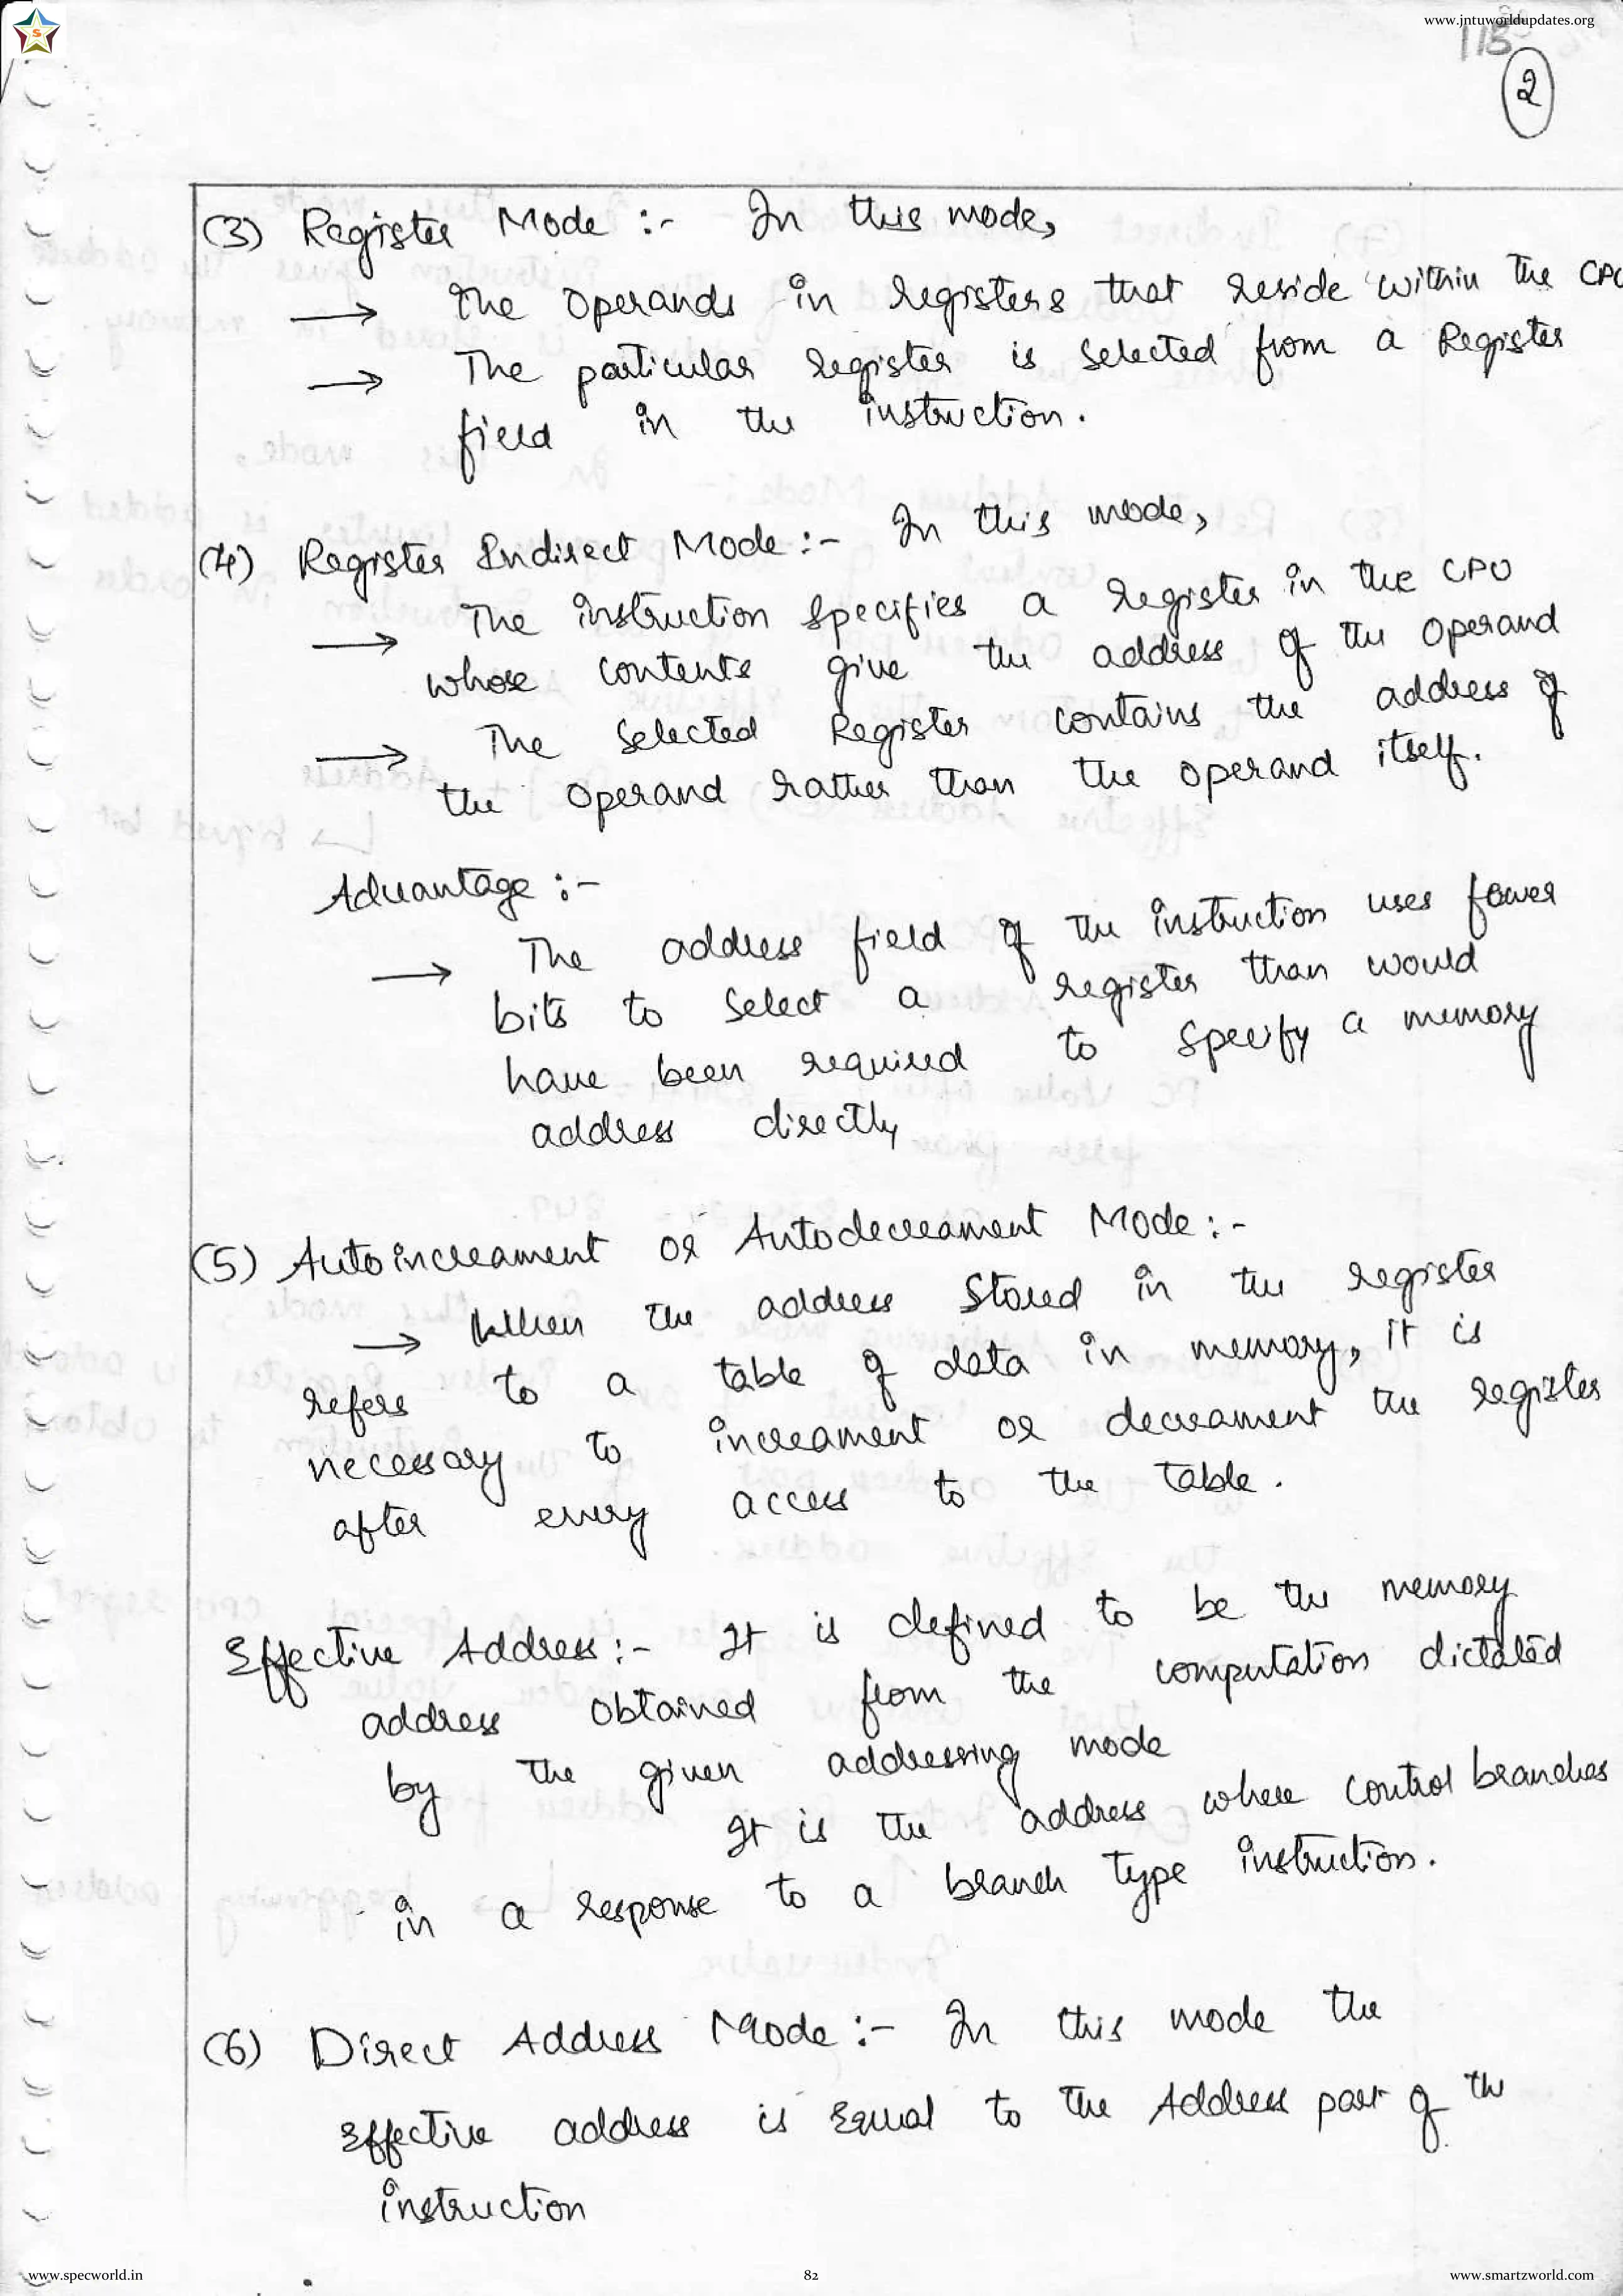 www.jntuworldupdates.org
S
115
2
(3) Register Mode :- In this mode,
→ the operands in registers that reside within the CPU
→ The particular register is selected from a Register
field in the instruction.
(4) Register Indirect Mode :- In this mode,
→ The instruction specifies a register in the CPU
whose contents give the address of the operand
→ The selected Register contains the address of
the operand rather than the operand itself.
Advantage :-
→ The address field of the instruction uses fewer
bits to select a register than would
have been required to specify a memory
address directly
(5) Autoincreament or Autodecreament Mode :-
→ When the address stored in the register
refers to a table of data in memory, it is
necessary to increament or decreament the register
after every access to the table.
Effective Address :- It is defined to be the memory
address obtained from the computation dictated
by the given addressing mode
It is the address where control branches
in a response to a branch type instruction.
(6) Direct Address Mode :- In this mode the
Effective address is Equal to the Address part of the
instruction
www.specworld.in
82
www.smartzworld.com